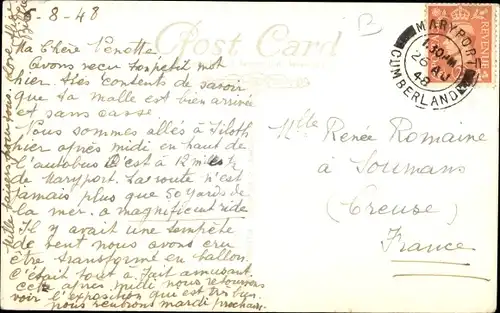 -8-48
Post Card
Ma Chère Nénette
Avons reçu ton petit mot
hier. Très contents de savoir
que ta malle est bien arrivée
et sans casse.
Nous sommes allés à Siloth
hier après midi en haut de
l'autobus C'est à 12 miles
de Maryport. La route n'est
jamais plus que 50 yards de
la mer. a magnificent ride
Il y avait une tempête
de vent nous avons cru
être transformé en ballon.
C'était tout à fait amusant.
Cette après midi nous retournons
voir l'exposition qui est très bien.
nous rentrons mardi prochain.
Mille baisers pour vous. Love
MARYPORT
CUMBERLAND
1.30 PM
26 AU
48
REVENUE
Mlle Renée Romaine
à Soumans
(Creuse)
France
B